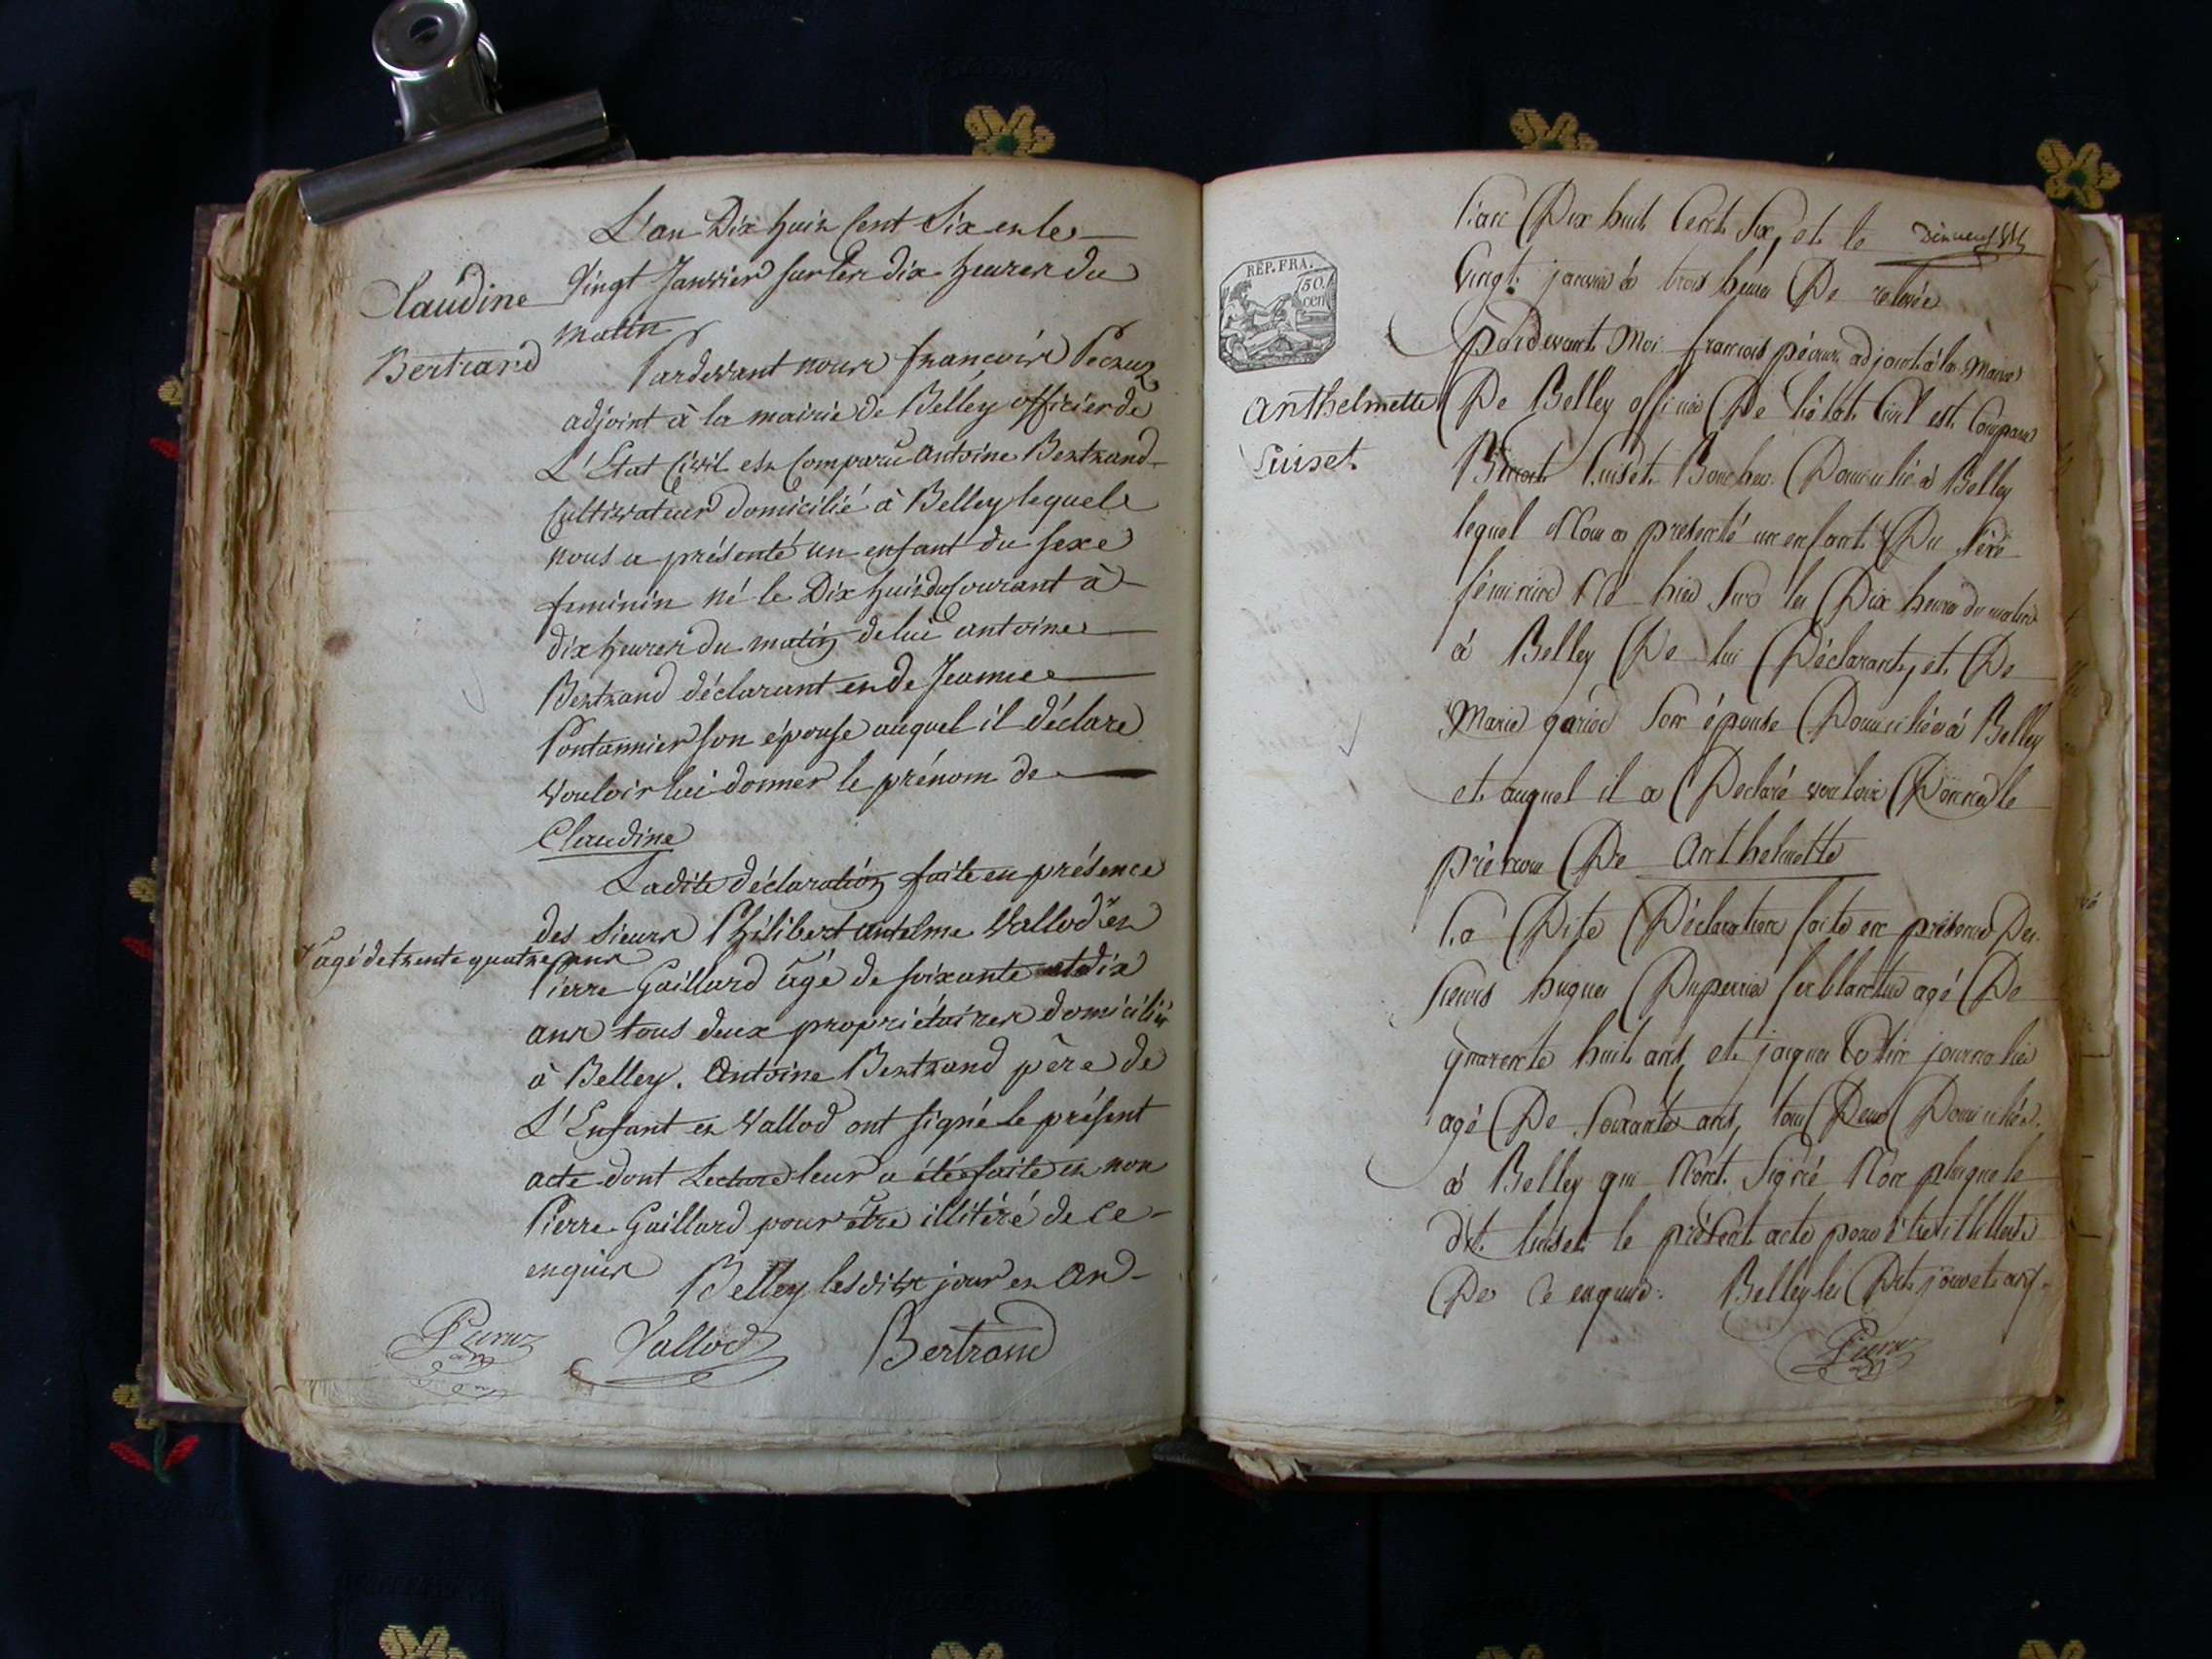 L'an Dix huit Cent Six et le
Claudine
Vingt Janvier sur les dix heures du
matin
Bertrand
Pardevant nous françois Pecruz
adjoint à la mairie de Belley officier de
L'Etat Civil est Comparu Antoine Bertrand
Cultivateur domicilié à Belley lequel
nous a présenté un enfant du sexe
feminin né le Dix huit du Courant à
dix heures du matin de lui antoine
Bertrand déclarant et de Jeanne
Pontannier son épouse auquel il déclare
vouloir lui donner le prénom de
Claudine
Ladite déclaration faite en présence
des sieurs Philibert antelme Vallod et
agé de trente quatre ans
Pierre Gaillard âgé de soixante et dix
ans tous deux propriétaires domiciliés
à Belley. Antoine Bertrand père de
L'Enfant et Vallod ont signé le présent
acte dont Lecture leur a été faite et non
Pierre Gaillard pour être illitéré de ce
enquis
Belley lesdits jour et an
Vallod
Bertrand
L'an Dix huit Cent Six, et le
Vingt janvier à trois heures De relevée
REP. FRA.
50
cen
pardevant Moi françois adjoint à la Mairie
Anthelmette
De Belley officier De l'état Civil est Comparu
Luiset
Benoit Luiset Boucher Domicilié à Belley
lequel Nous a presenté un enfant Du Sexe
féminin Né hier Sur les Dix heures du matin
à Belley De lui Déclarant, et De
Marie son épouse Domiciliés à Belley
et auquel il a Declaré vouloir Donner le
prénom De Anthelmette
La Dite Déclaration faite en présence Des
Sieurs hugues Duperrier ferblantier agé De
quarente huit ans, et jacques Cotin journalier
agé De Soixante ans, tous Deux Domiciliés
à Belley qui N'ont Signé Non plus que le
dit luiset le présent acte pour être illiteré
De Ce enquis. Belley les Dits jour et an